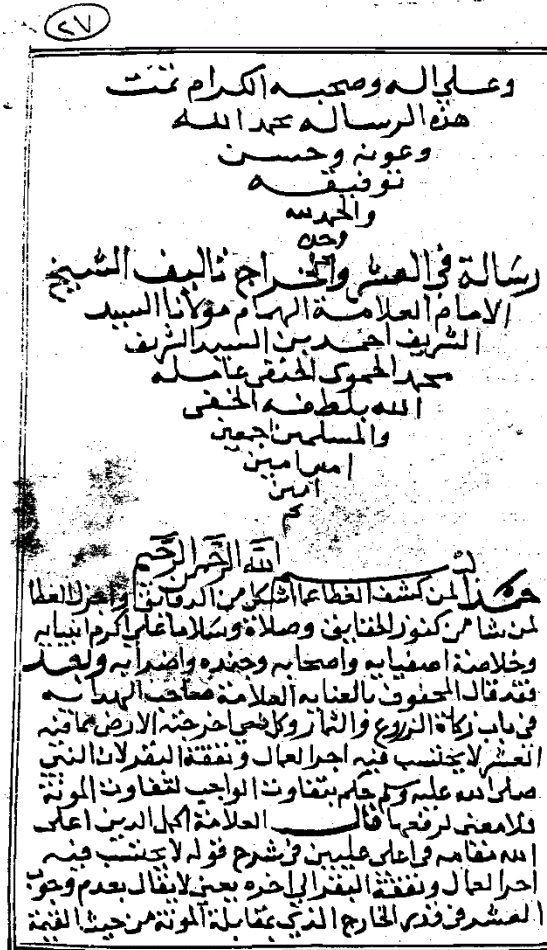 ٢٧
وعلي اله وصحبه الكرام تمت
هذه الرساله بحمد الله
وعونه وحسن
توفيقه
والحمد لله
وحده
رسالة في العشر والخراج تاليف الشيخ
الامام العلامة الهمام مولانا السيد
الشريف احمد بن السيد الشريف
محمد الحموي الحنفي عامله
الله بلطفه الخفي
والمسلمين اجمعين
امين امين
امين
م
بسم الله الرحمن الرحيم
حمدا لمن كشف الغطا عما اشكل من الدقايق واجزل العطا
لمن شا من كنوز الحقايق وصلاة وسلاما علي اكرم انبيايه
وخلاصة اصفيايه واصحابه وجنده واصدايه وبعد
فقد قال المحفوف بالعنايه العلامة صاحب الهدايه
في باب زكاة الزروع والثمار وكل شي اخرجته الارض مما فيه
العشر لا يحتسب فيه اجر العمال ونفقة البقر لان النبي
صلي الله عليه وسلم حكم بتفاوت الواجب لتفاوت المونة
فلا معني لرفعها قال العلامة اكمل الدين اعلي
الله مقامه في اعلي عليين في شرح قوله لا يحتسب فيه
اجر العمال ونفقة البقر الي اخره يعني لا يقال بعدم وجوب
العشر في قدر الخارج الذي بمقابلة المونة من حيث القيمة